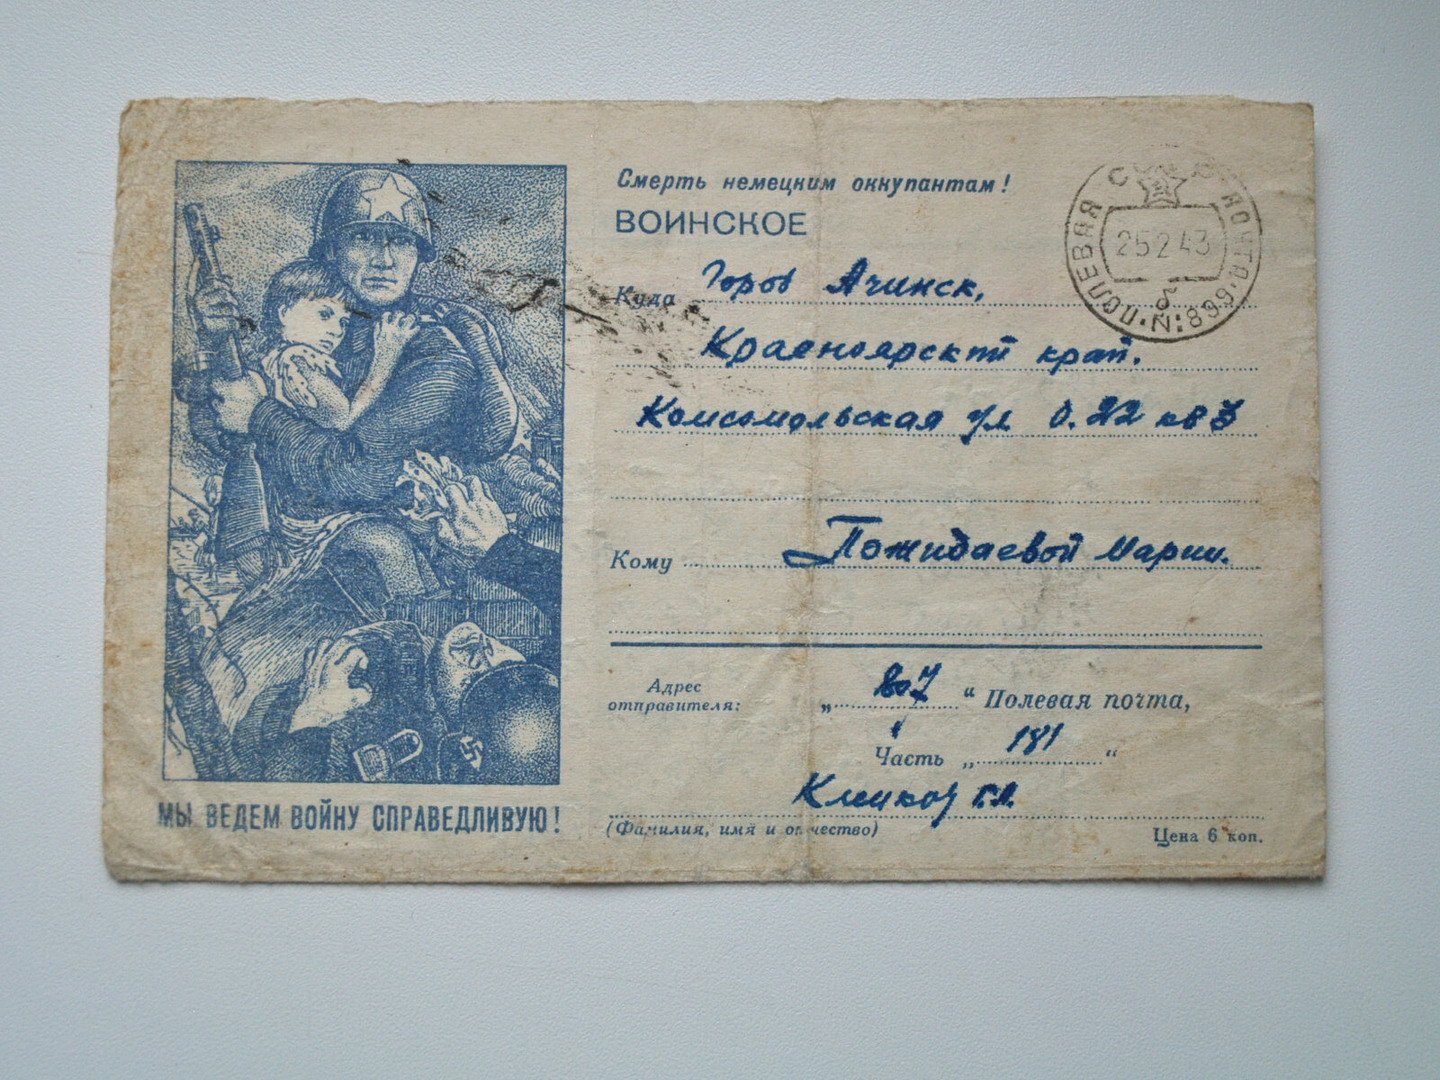 Смерть немецким оккупантам!
ВОИНСКОЕ
Куда Город Ачинск,
Красноярский край.
Комсомольская ул д. 22 кв 3
Кому Пожидаевой Марии.
Адрес
отправителя:
„ 807 “ Полевая почта,
Часть „ 181 “
Г.Л.
(Фамилия, имя и отчество)
Цена 6 коп.
МЫ ВЕДЕМ ВОЙНУ СПРАВЕДЛИВУЮ!
ПОЛЕВАЯ ПОЧТА
25 2 43
№: 899
б